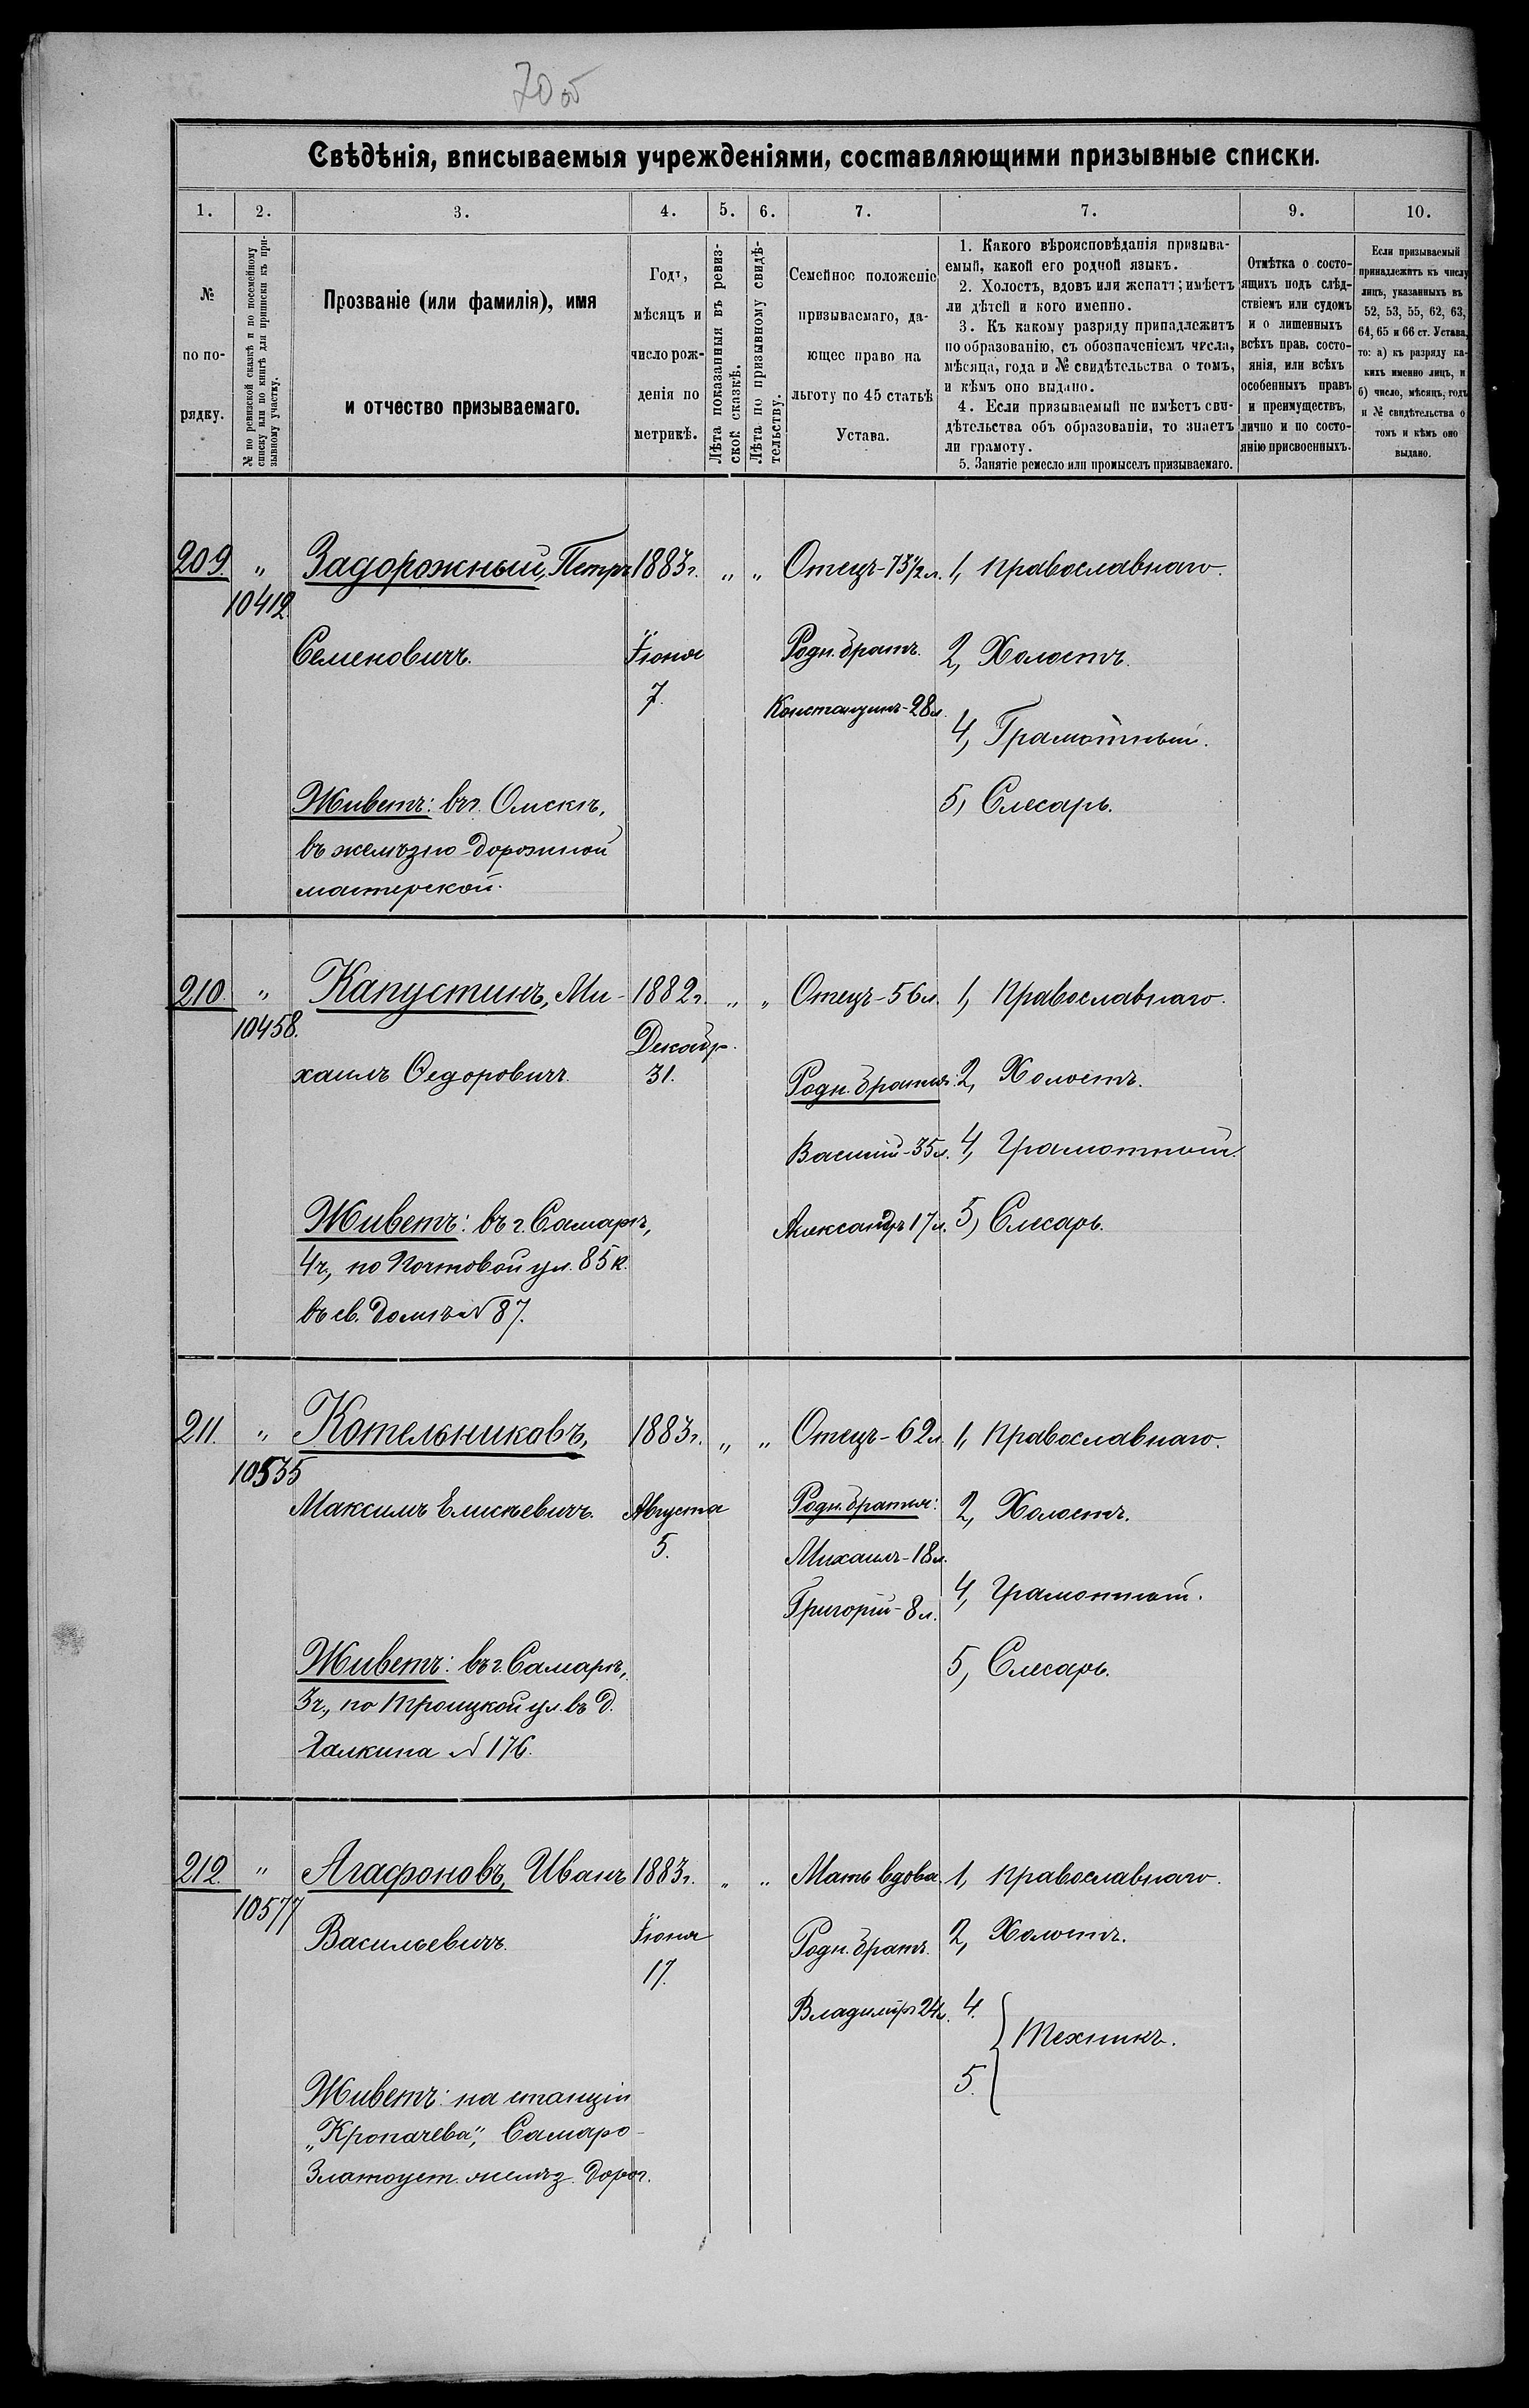 70 об
Свѣдѣнія, вписываемыя учрежденіями, составляющими призывные списки.
1. 2. 3. 4. 5. 6. 7. 7. 9. 10.
№
по по-
рядку.
№ по ревизской сказкѣ и по посемейному
списку или по книгѣ для приписки къ при-
зывному участку.
Прозваніе (или фамилія), имя
и отчество призываемаго.
Годъ,
мѣсяцъ и
число рож-
денія по
метрикѣ.
Лѣта показанныя въ ревиз-
ской сказкѣ.
Лѣта по призывному свидѣ-
тельству.
Семейное положеніе
призываемаго, да-
ющее право на
льготу по 45 статьѣ
Устава.
1. Какого вѣроисповѣданія призыва-
емый, какой его родной языкъ.
2. Холостъ, вдовъ или женатъ; имѣетъ
ли дѣтей и кого именно.
3. Къ какому разряду принадлежитъ
по образованію, съ обозначеніемъ числа,
мѣсяца, года и № свидѣтельства о томъ,
и кѣмъ оно выдано.
4. Если призываемый не имѣетъ сви-
дѣтельства объ образованіи, то знаетъ
ли грамоту.
5. Занятіе ремесло или промыселъ призываемаго.
Отмѣтка о состо-
ящихъ подъ слѣд-
ствіемъ или судомъ
и о лишенныхъ
всѣхъ прав. состо-
янія, или всѣхъ
особенныхъ правъ
и преимуществъ,
лично и по состо-
янію присвоенныхъ.
Если призываемый
принадлежитъ къ числу
лицъ, указанныхъ въ
52, 53, 55, 62, 63,
64, 65 и 66 ст. Устава,
то: а) къ разряду ка-
кихъ именно лицъ, и
б) число, мѣсяцъ, годъ
и № свидѣтельства о
томъ и кѣмъ оно
выдано.
209. " Задорожный, Петръ 1883г. " " Отецъ-73½л. 1, Православнаго.
10412.
Семеновичъ. Іюня Родн. братъ. 2, Холостъ.
7. Константинъ-28л.
4, Грамотный.
Живетъ: въ г. Омскѣ, 5, Слесарь.
въ желѣзно-дорожной
мастерской.
210. " Капустинъ, Ми- 1882г. " " Отецъ-56л. 1, Православнаго.
10458. Декабр.
хаилъ Ѳедоровичъ. 31. Родн. братья: 2, Холостъ.
Василій-35л. 4, Грамотный.
Живетъ: въ г. Самарѣ, Александръ 17л. 5, Слесарь.
4ч., по Почтовой ул. 85 к.
въ св. домѣ № 87.
211. " Котельниковъ, 1883г. " " Отецъ-62л. 1, Православнаго.
10535
Максимъ Елисѣевичъ. Августа Родн. братья: 2, Холостъ.
5. Михаилъ-18л.
Григорій-8л. 4, Грамотный.
Живетъ: въ г. Самарѣ, 5, Слесарь.
3ч., по Троицкой ул. въ д.
Галкина № 176.
212. " Агафоновъ, Иванъ 1883г. " " Мать вдова. 1, Православнаго.
10577
Васильевичъ. Іюня Родн. братъ. 2, Холостъ.
17. Владиміръ 24л. 4.
Техникъ.
5.
Живетъ: на станціи
„Кропачева", Самаро-
Златоуст. желѣз. дорог.